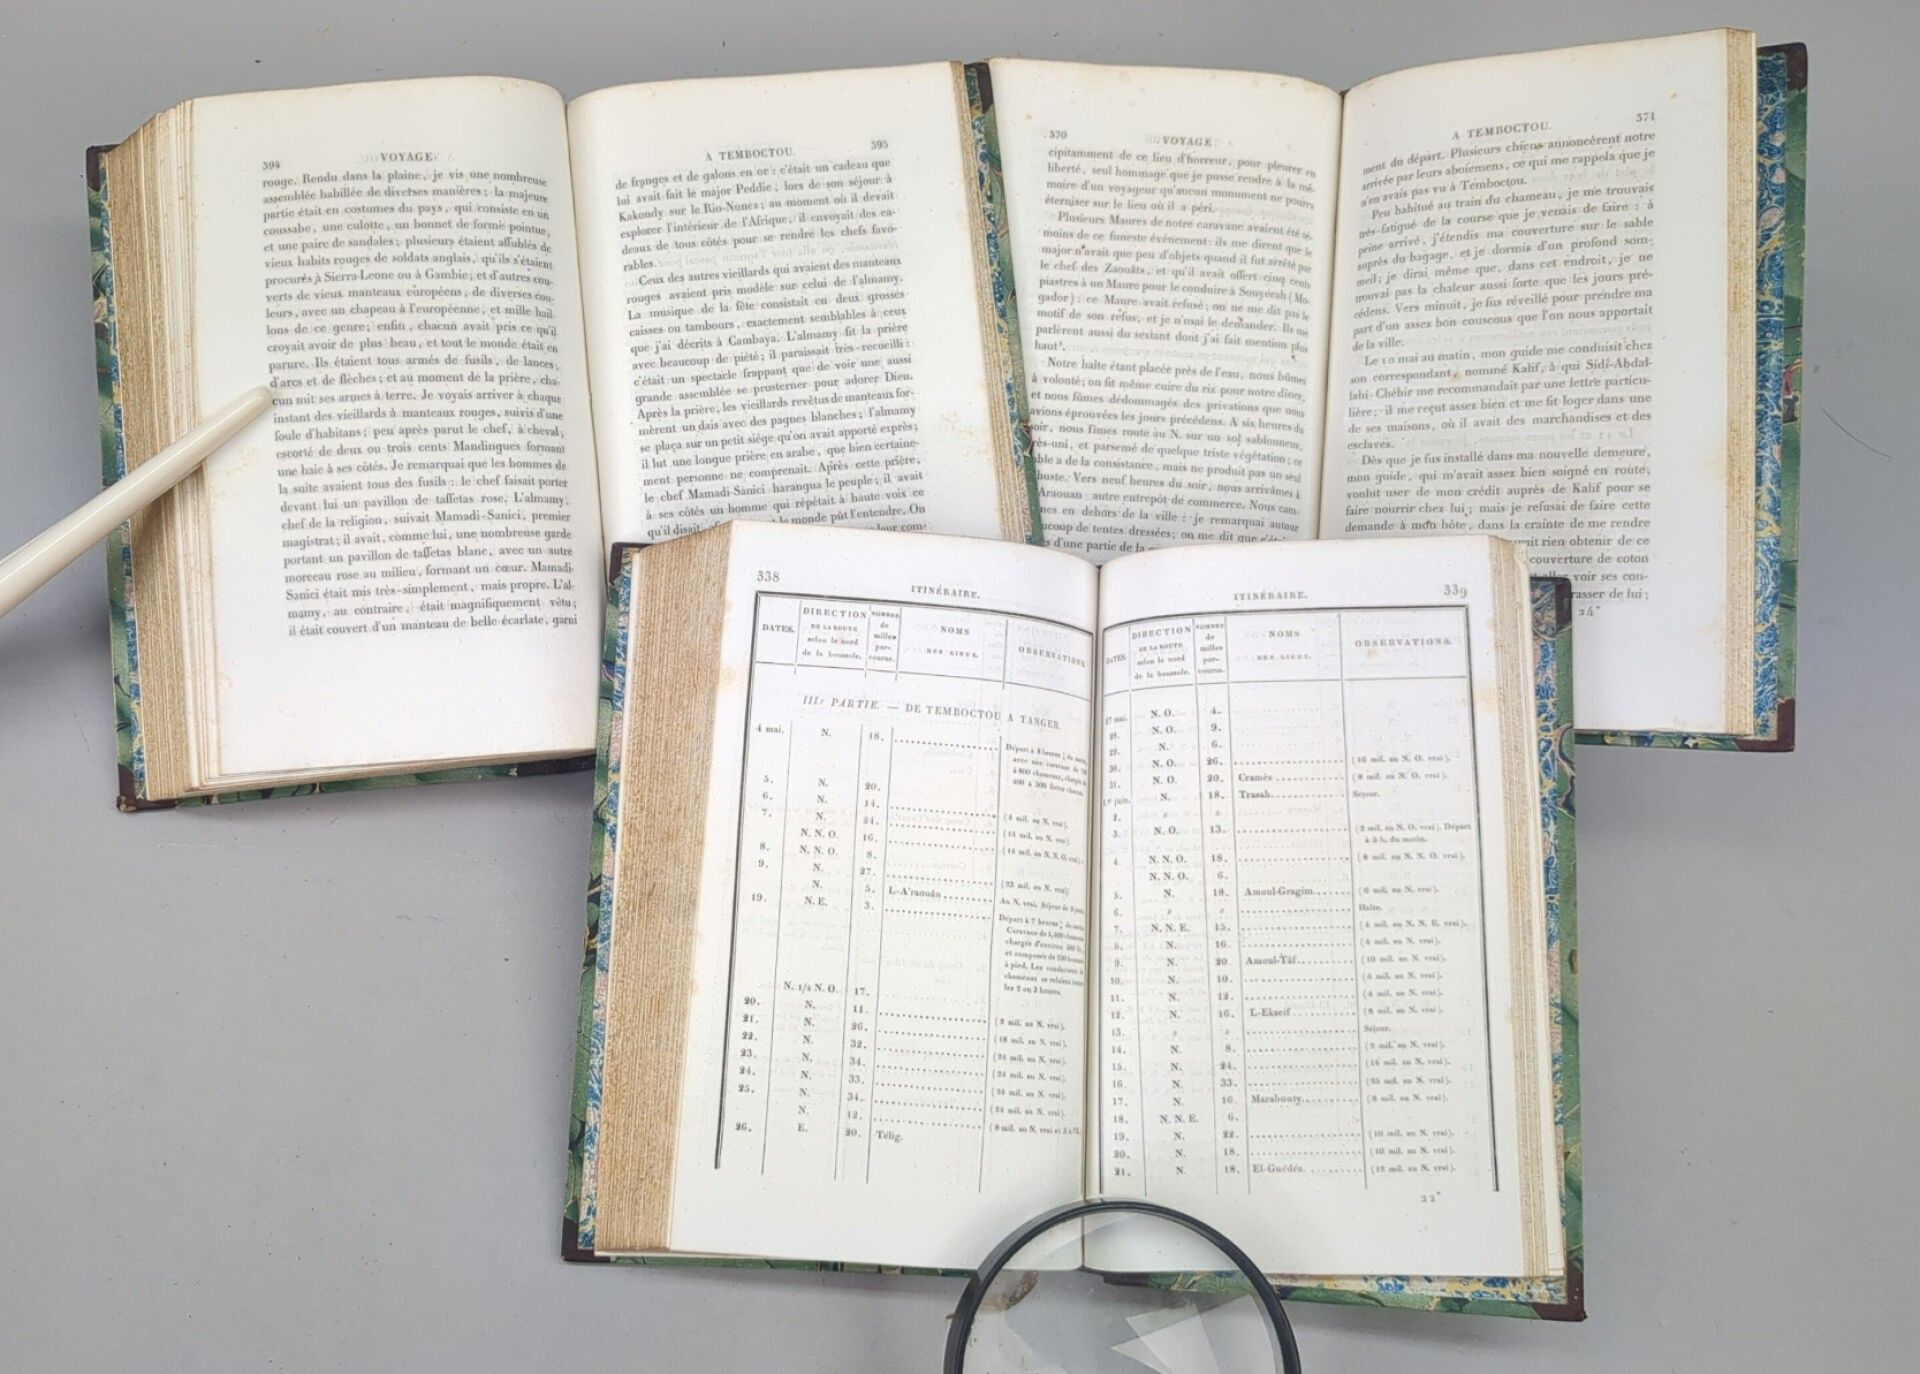 394
VOYAGE
rouge. Rendu dans la plaine, je vis une nombreuse
assemblée habillée de diverses manières; la majeure
partie était en costumes du pays, qui consiste en un
coussabe, une culotte, un bonnet de forme pointue,
et une paire de sandales; plusieurs étaient affublés de
vieux habits rouges de soldats anglais, qu'ils s'étaient
procurés à Sierra-Leone ou à Gambie; et d'autres cou-
verts de vieux manteaux européens, de diverses cou-
leurs, avec un chapeau à l'européenne, et mille hail-
lons de ce genre; enfin, chacun avait pris ce qu'il
croyait avoir de plus beau, et tout le monde était en
parure. Ils étaient tous armés de fusils, de lances,
d'arcs et de flèches; et au moment de la prière, cha-
cun mit ses armes à terre. Je voyais arriver à chaque
instant des vieillards à manteaux rouges, suivis d'une
foule d'habitans; peu après parut le chef, à cheval,
escorté de deux ou trois cents Mandingues formant
une haie à ses côtés. Je remarquai que les hommes de
la suite avaient tous des fusils: le chef faisait porter
devant lui un pavillon de taffetas rose. L'almamy,
chef de la religion, suivait Mamadi-Sanici, premier
magistrat; il avait, comme lui, une nombreuse garde
portant un pavillon de taffetas blanc, avec un autre
morceau rose au milieu, formant un cœur. Mamadi-
Sanici était mis très-simplement, mais propre. L'al-
mamy, au contraire, était magnifiquement vêtu;
il était couvert d'un manteau de belle écarlate, garni
A TEMBOCTOU.
395
de franges et de galons en or: c'était un cadeau que
lui avait fait le major Peddie, lors de son séjour à
Kakondy sur le Rio-Nunes; au moment où il devait
explorer l'intérieur de l'Afrique, il envoyait des ca-
deaux de tous côtés pour se rendre les chefs favo-
rables.
Ceux des autres vieillards qui avaient des manteaux
rouges avaient pris modèle sur celui de l'almamy.
La musique de la fête consistait en deux grosses
caisses ou tambours, exactement semblables à ceux
que j'ai décrits à Cambaya. L'almamy fit la prière
avec beaucoup de piété; il paraissait très-recueilli:
c'était un spectacle frappant que de voir une aussi
grande assemblée se prosterner pour adorer Dieu.
Après la prière, les vieillards revêtus de manteaux for-
mèrent un dais avec des pagnes blanches; l'almamy
se plaça sur un petit siége qu'on avait apporté exprès;
il lut une longue prière en arabe, que bien certaine-
ment personne ne comprenait. Après cette prière,
le chef Mamadi-Sanici harangua le peuple; il avait
à ses côtés un homme qui répétait à haute voix ce
qu'il disait, monde pût l'entendre. On
leur com-
370
VOYAGE
cipitamment de ce lieu d'horreur, pour pleurer en
liberté, seul hommage que je pusse rendre à la mé-
moire d'un voyageur qu'aucun monument ne pourra
éterniser sur le lieu où il a péri.
Plusieurs Maures de notre caravane avaient été té-
moins de ce funeste événement: ils me dirent que le
major n'avait que peu d'objets quand il fut arrêté par
le chef des Zaouâts, et qu'il avait offert cinq cents
piastres à un Maure pour le conduire à Souyerah (Mo-
gador): ce Maure avait refusé; on ne me dit pas le
motif de son refus, et je n'osai le demander. Ils me
parlèrent aussi du sextant dont j'ai fait mention plus
haut¹.
Notre halte étant placée près de l'eau, nous bûmes
à volonté; on fit même cuire du riz pour notre dîner,
et nous fûmes dédommagés des privations que nous
avions éprouvées les jours précédens. A six heures du
soir, nous fîmes route au N. sur un sol sablonneux,
très-uni, et parsemé de quelque triste végétation; ce
sable a de la consistance, mais ne produit pas un seul
buste. Vers neuf heures du soir, nous arrivâmes à
Araouan autre entrepôt de commerce. Nous cam-
en dehors de la ville: je remarquai autour
de tentes dressées; on me dit que
d'une partie de la
A TEMBOCTOU.
371
ment du départ. Plusieurs chiens annoncèrent notre
arrivée par leurs aboiemens, ce qui me rappela que je
n'en avais pas vu à Temboctou.
Peu habitué au train du chameau, je me trouvais
très-fatigué de la course que je venais de faire: à
peine arrivé, j'étendis ma couverture sur le sable
auprès du bagage, et je dormis d'un profond som-
meil; je dirai même que, dans cet endroit, je ne
trouvai pas la chaleur aussi forte que les jours pré-
cédens. Vers minuit, je fus réveillé pour prendre ma
part d'un assez bon couscous que l'on nous apportait
de la ville.
Le 10 mai au matin, mon guide me conduisit chez
son correspondant, nommé Kalif, à qui Sidi-Abdal-
lahi-Chébir me recommandait par une lettre particu-
lière; il me reçut assez bien et me fit loger dans une
de ses maisons, où il avait des marchandises et des
esclaves.
Dès que je fus installé dans ma nouvelle demeure,
mon guide, qui m'avait assez bien soigné en route,
voulut user de mon crédit auprès de Kalif pour se
faire nourrir chez lui; mais je refusai de faire cette
demande à mon hôte, dans la crainte de me rendre
rien obtenir de ce
couverture de coton
aller voir ses con-
rasser de lui;
24*
338
ITINÉRAIRE.
DATES. DIRECTION DE LA ROUTE selon le nord de la boussole. NOMBRE de milles par- courus. NOMS DES LIEUX. OBSERVATIONS.
IIIe PARTIE. — DE TEMBOCTOU A TANGER.
4 mai. N. 18. Départ à 8 heures du matin,
avec une caravane de 7
à 800 chameaux, chargés de
400 à 500 livres chacun.
5. N. 20.
6. N. 14. (4 mil. au N. vrai).
7. N. 24. (14 mil. au N. vrai).
N. N. O. 16. (14 mil. au N. N. O. vrai).
8. N. N. O. 8.
9. N. 27. (23 mil. au N. vrai).
N. 5. L-A'raouân Au N. vrai. Séjour de 9 jours.
19. N. E. 3. Départ à 7 heures du matin.
Caravane de 1,400 chameaux
chargés d'environ 500 liv.
et composée de
à pied. Les conducteurs de
chameaux se relaient toutes
les 2 ou 3 heures.
N. 1/4 N. O. 17.
20. N. 11.
21. N. 26. (2 mil. au N. vrai).
22. N. 32. (18 mil. au N. vrai).
23. N. 34. (24 mil. au N. vrai).
24. N. 33. (24 mil. au N. vrai).
25. N. 34. (24 mil. au N. vrai).
N. 12. (24 mil. au N. vrai).
26. E. 20. Télig. (8 mil. au N. vrai et 3 à l'E.
ITINÉRAIRE.
339
DATES. DIRECTION DE LA ROUTE selon le nord de la boussole. NOMBRE de milles par- courus. NOMS DES LIEUX. OBSERVATIONS.
27 mai. N. O. 4.
28. N. O. 9.
29. N. 6.
30. N. O. 26. (16 mil. au N. O. vrai).
31. N. O. 20. Cramès (8 mil. au N. O. vrai).
1er juin. N. 18. Trasah. Séjour.
2. " "
3. N. O. 13. (2 mil. au N. O. vrai). Départ
à 3 h. du matin.
4. N. N. O. 18. (8 mil. au N. N. O. vrai).
N. N. O. 6.
5. N. 18. Amoul-Gragim. (6 mil. au N. vrai).
6. " " Halte.
7. N. N. E. 15. (4 mil. au N. N. E. vrai).
8. N. 16. (4 mil. au N. vrai).
9. N. 20. Amoul-Tâf. (10 mil. au N. vrai).
10. N. 10. (4 mil. au N. vrai).
11. N. 12. (4 mil. au N. vrai).
12. N. 16. L-Ekseif (8 mil. au N. vrai).
13. " " Séjour.
14. N. 8. (2 mil. au N. vrai).
15. N. 24. (14 mil. au N. vrai).
16. N. 33. (25 mil. au N. vrai).
17. N. 16. Marabouty. (8 mil. au N. vrai).
18. N. N. E. 6.
19. N. 22. (10 mil. au N. vrai).
20. N. 18. (10 mil. au N. vrai).
21. N. 18. El-Guédéa. (12 mil. au N. vrai).
22*